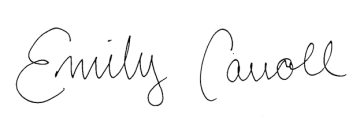 Emily Carroll